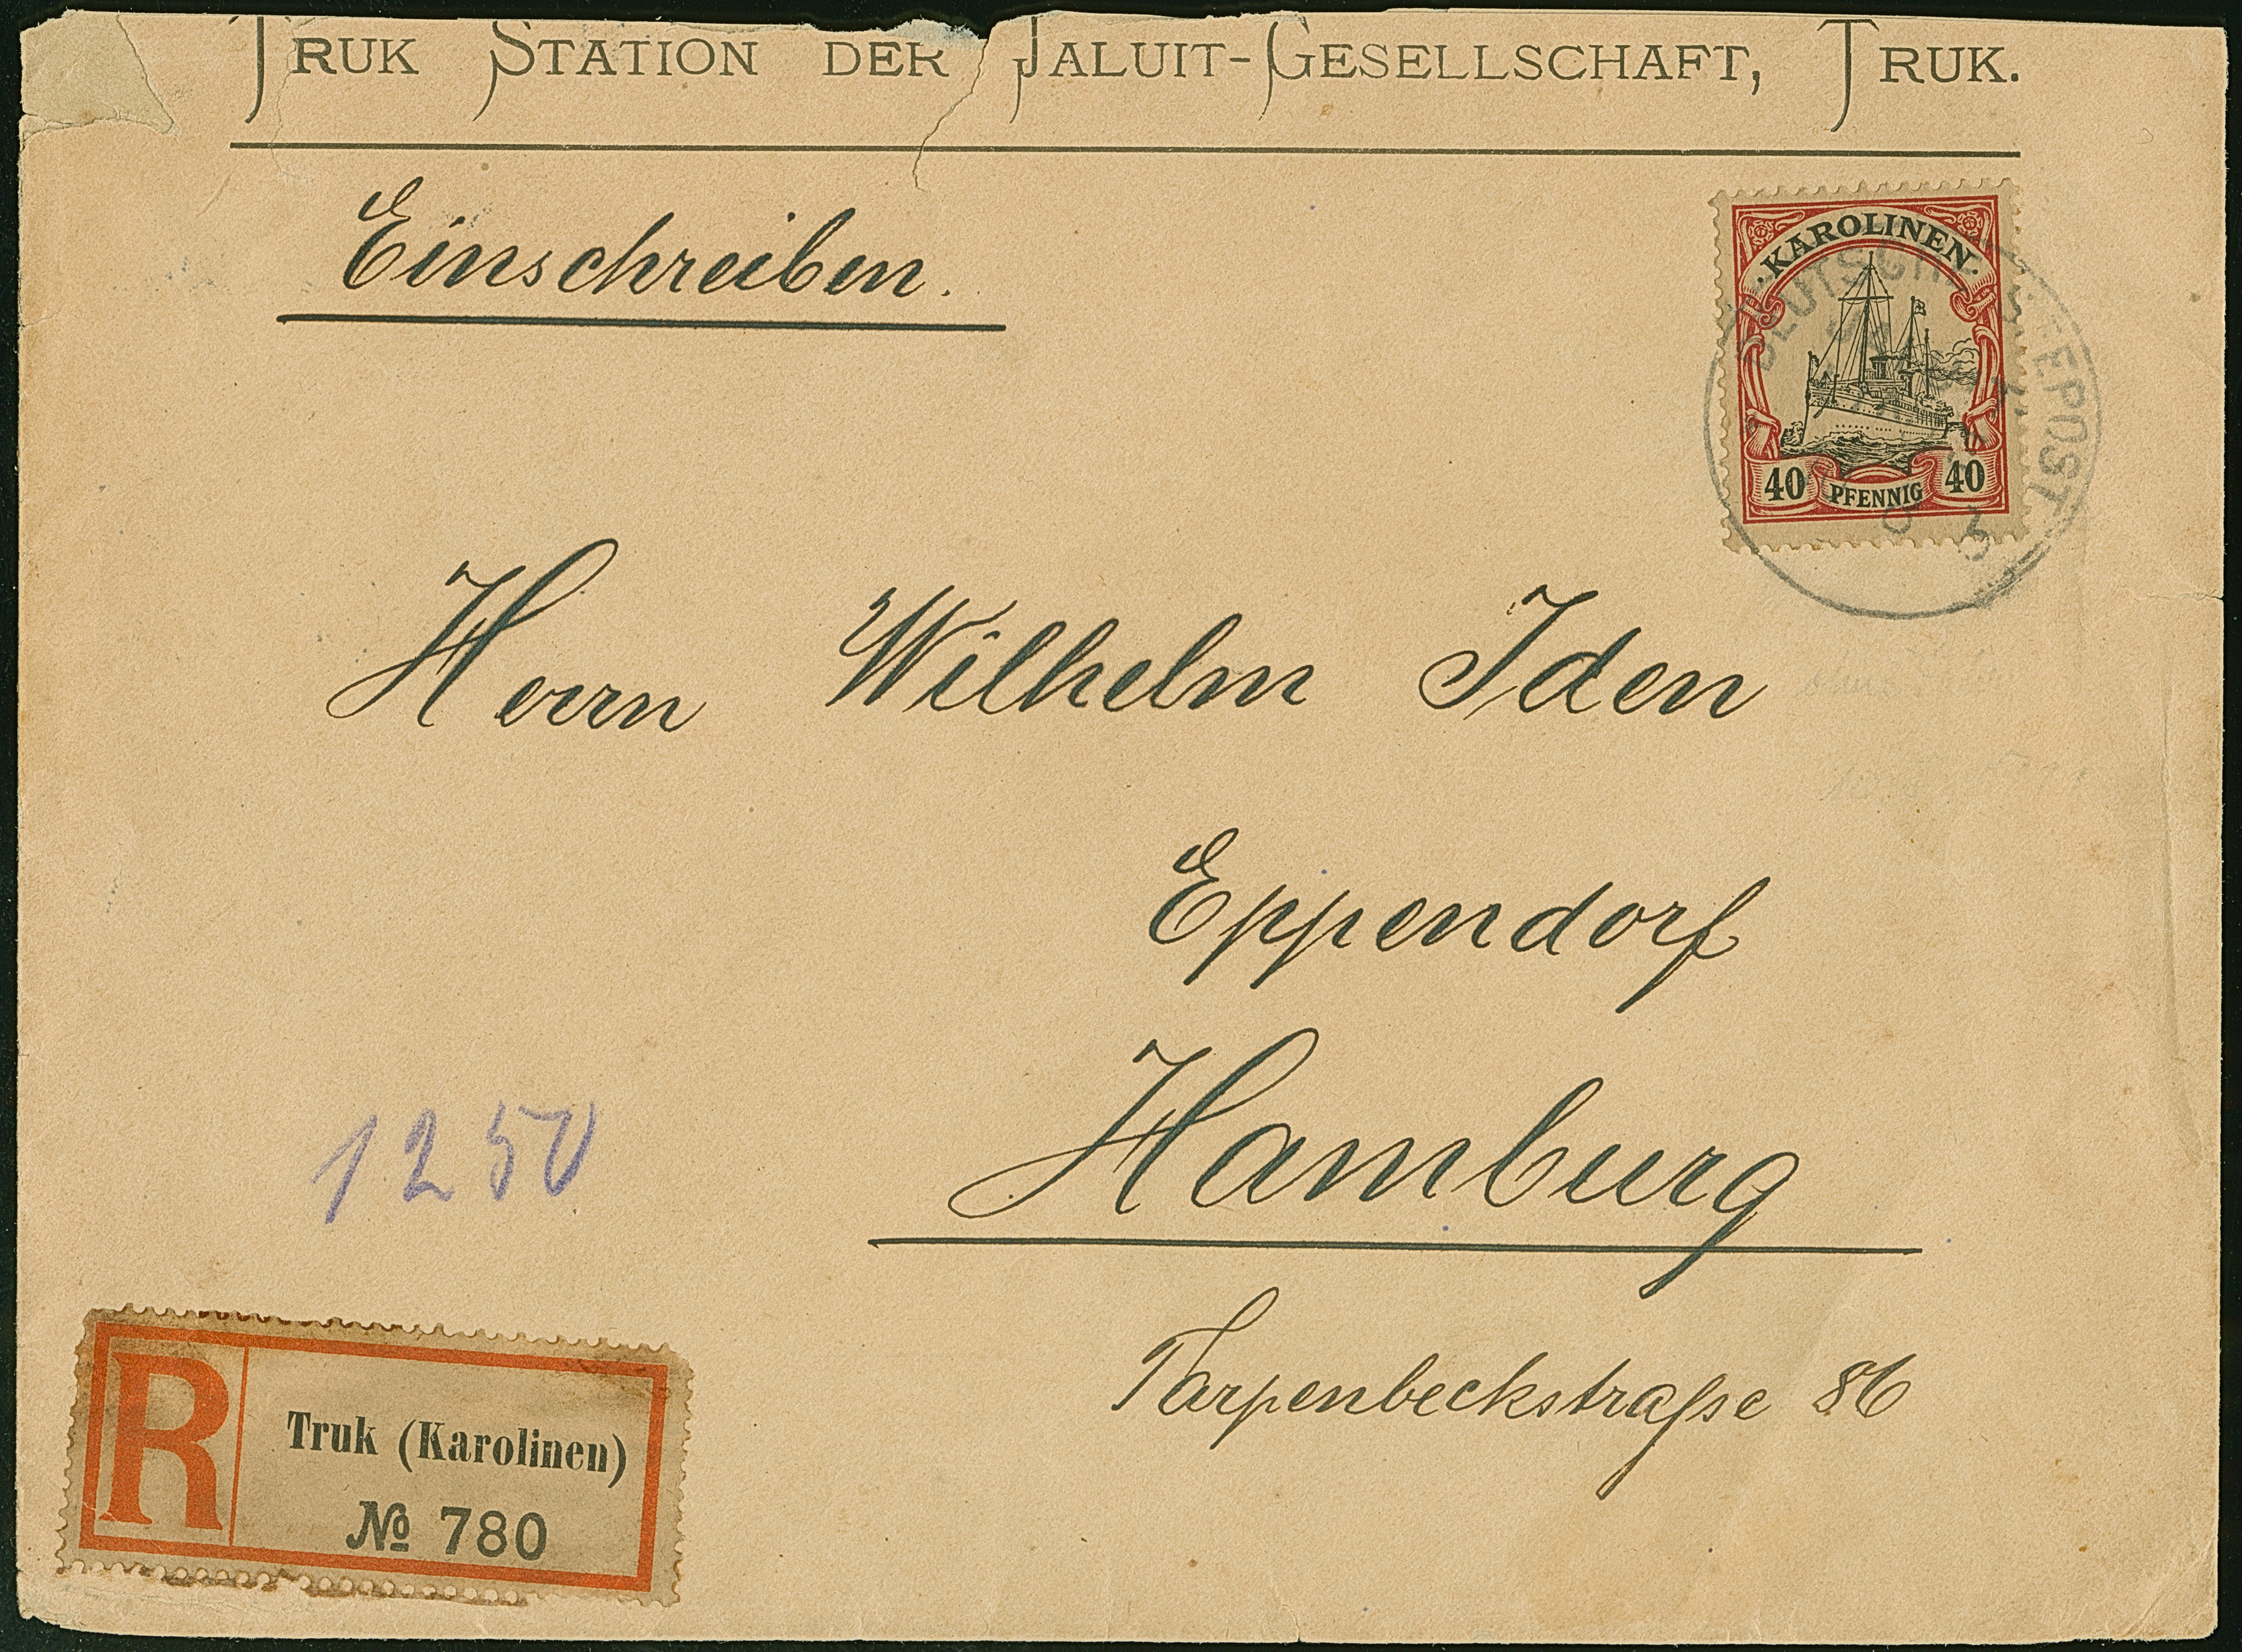 TRUK STATION DER JALUIT-GESELLSCHAFT, TRUK.
Einschreiben.
·KAROLINEN·
40 PFENNIG 40
DEUTSCHE SEEPOST
Herrn Wilhelm Iden
Eppendorf
Hamburg
Tarpenbeckstraſse 86
1250
R
Truk (Karolinen)
№ 780